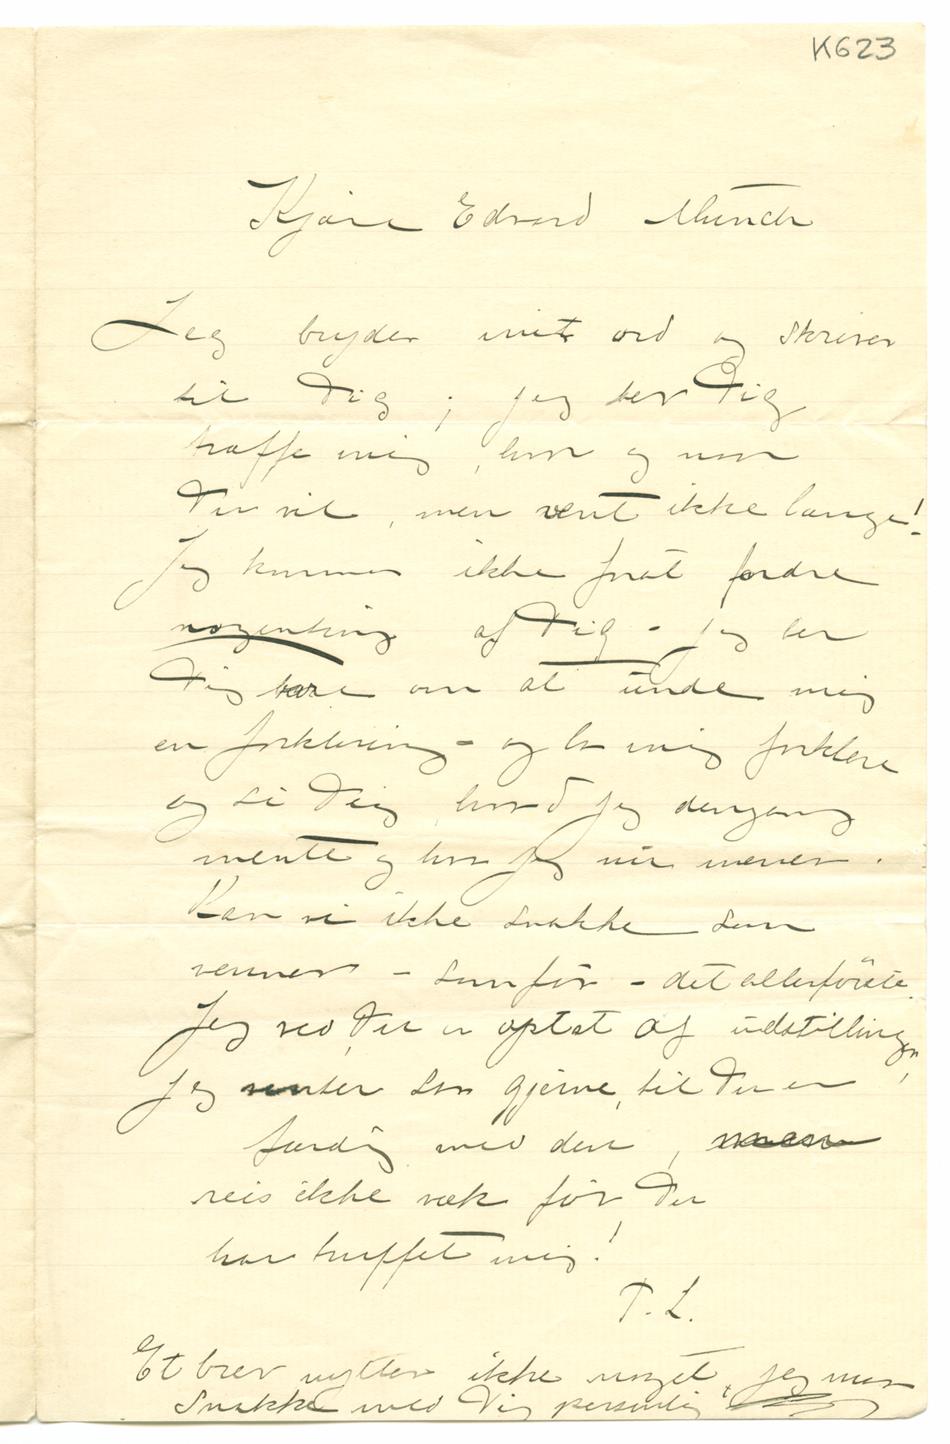 K623
Kjære Edvard Munch
Jeg bryder mit ord og skriver
til Dig; jeg ber Dig
træffe mig, hvor og naar
Du vil, men vent ikke længe!
Jeg kommer ikke forat fordre
nogenting af Dig – jeg ber
Dig bare om at unde mig
en forklaring – og la mig forklare
og si Dig hvad jeg dengang
mente og hva jeg nu mener.
Kan vi ikke snakke som
venner – somfør – det allerførste.
Jeg ved, Du er optat af udstillingen,
jeg venter saa gjerne, til Du er
færdig med den, men
reis ikke væk før Du
har truffet mig!
T. L.
Et brev nytter ikke noget, jeg maa
snakke med Dig personlig